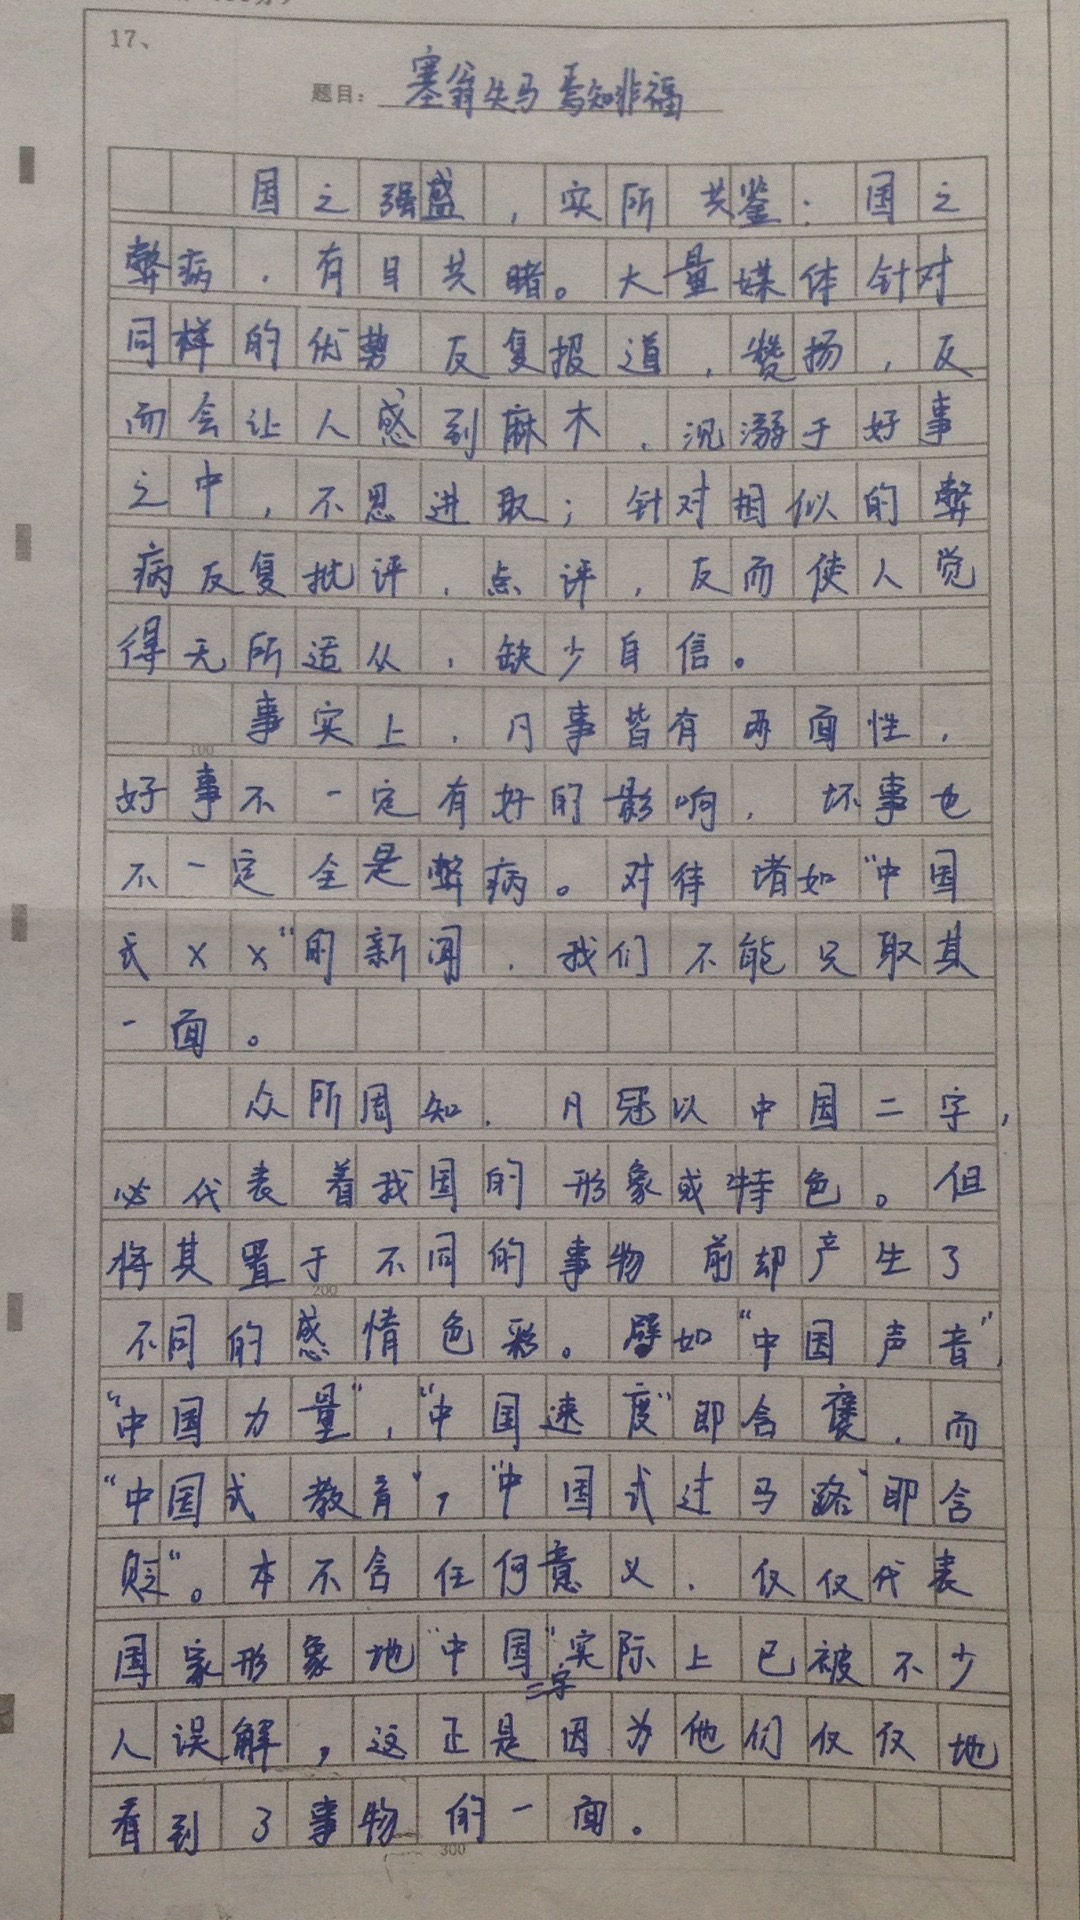 17、
题目：塞翁失马 焉知非福
国之强盛，实所共鉴：国之
弊病，有目共睹。大量媒体针对
同样的优势反复报道，赞扬，反
而会让人感到麻木，沉溺于好事
之中，不思进取；针对相似的弊
病反复批评，点评，反而使人觉
得无所适从，缺少自信。
事实上，凡事皆有两面性，
100
好事不一定有好的影响，坏事也
不一定全是弊病。对待诸如“中国
式××“的新闻，我们不能只取其
一面。
众所周知，凡冠以中国二字，
必代表着我国的形象或特色。但
将其置于不同的事物前却产生了
200
不同的感情色彩。譬如“中国声音”，
“中国力量”，“中国速度”即含褒，而
“中国式教育”，“中国式过马路”即含
贬”。本不含任何意义，仅仅代表
国家形象地“中国”二字实际上已被不少
人误解，这正是因为他们仅仅地
看到了事物的一面。
300